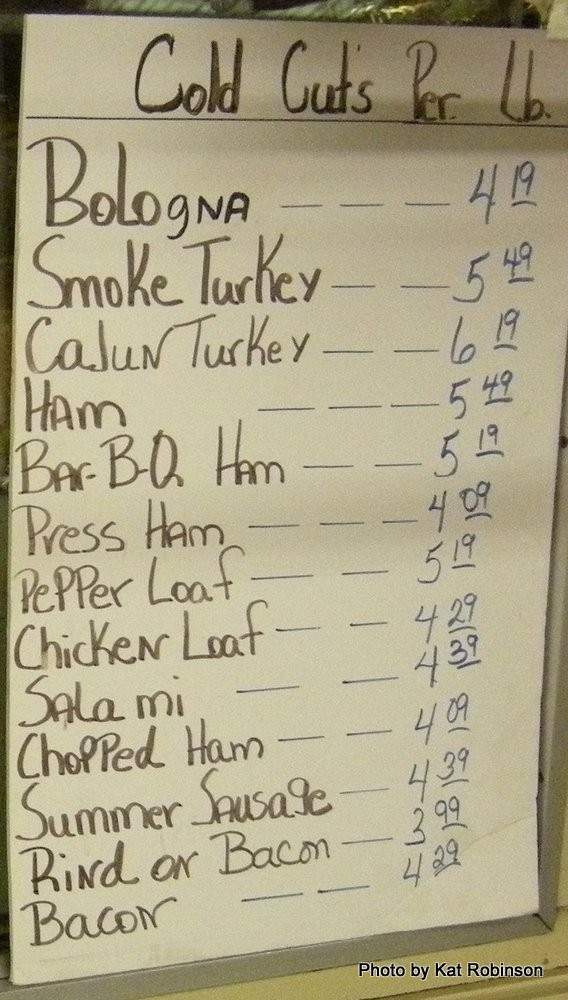 Cold Cut's Per. Lb.
Bologna — — — 4 19
Smoke Turkey — — 5 49
Cajun Turkey — — 6 19
Ham — — — 5 49
Bar-B-Q Ham — — 5 19
Press Ham — — — 4 09
Pepper Loaf — — 5 19
Chicken Loaf — — 4 29
Salami — — 4 39
Chopped Ham — — 4 09
Summer Sausage — 4 39
Rind on Bacon — 3 99
Bacon — — 4 29
Photo by Kat Robinson